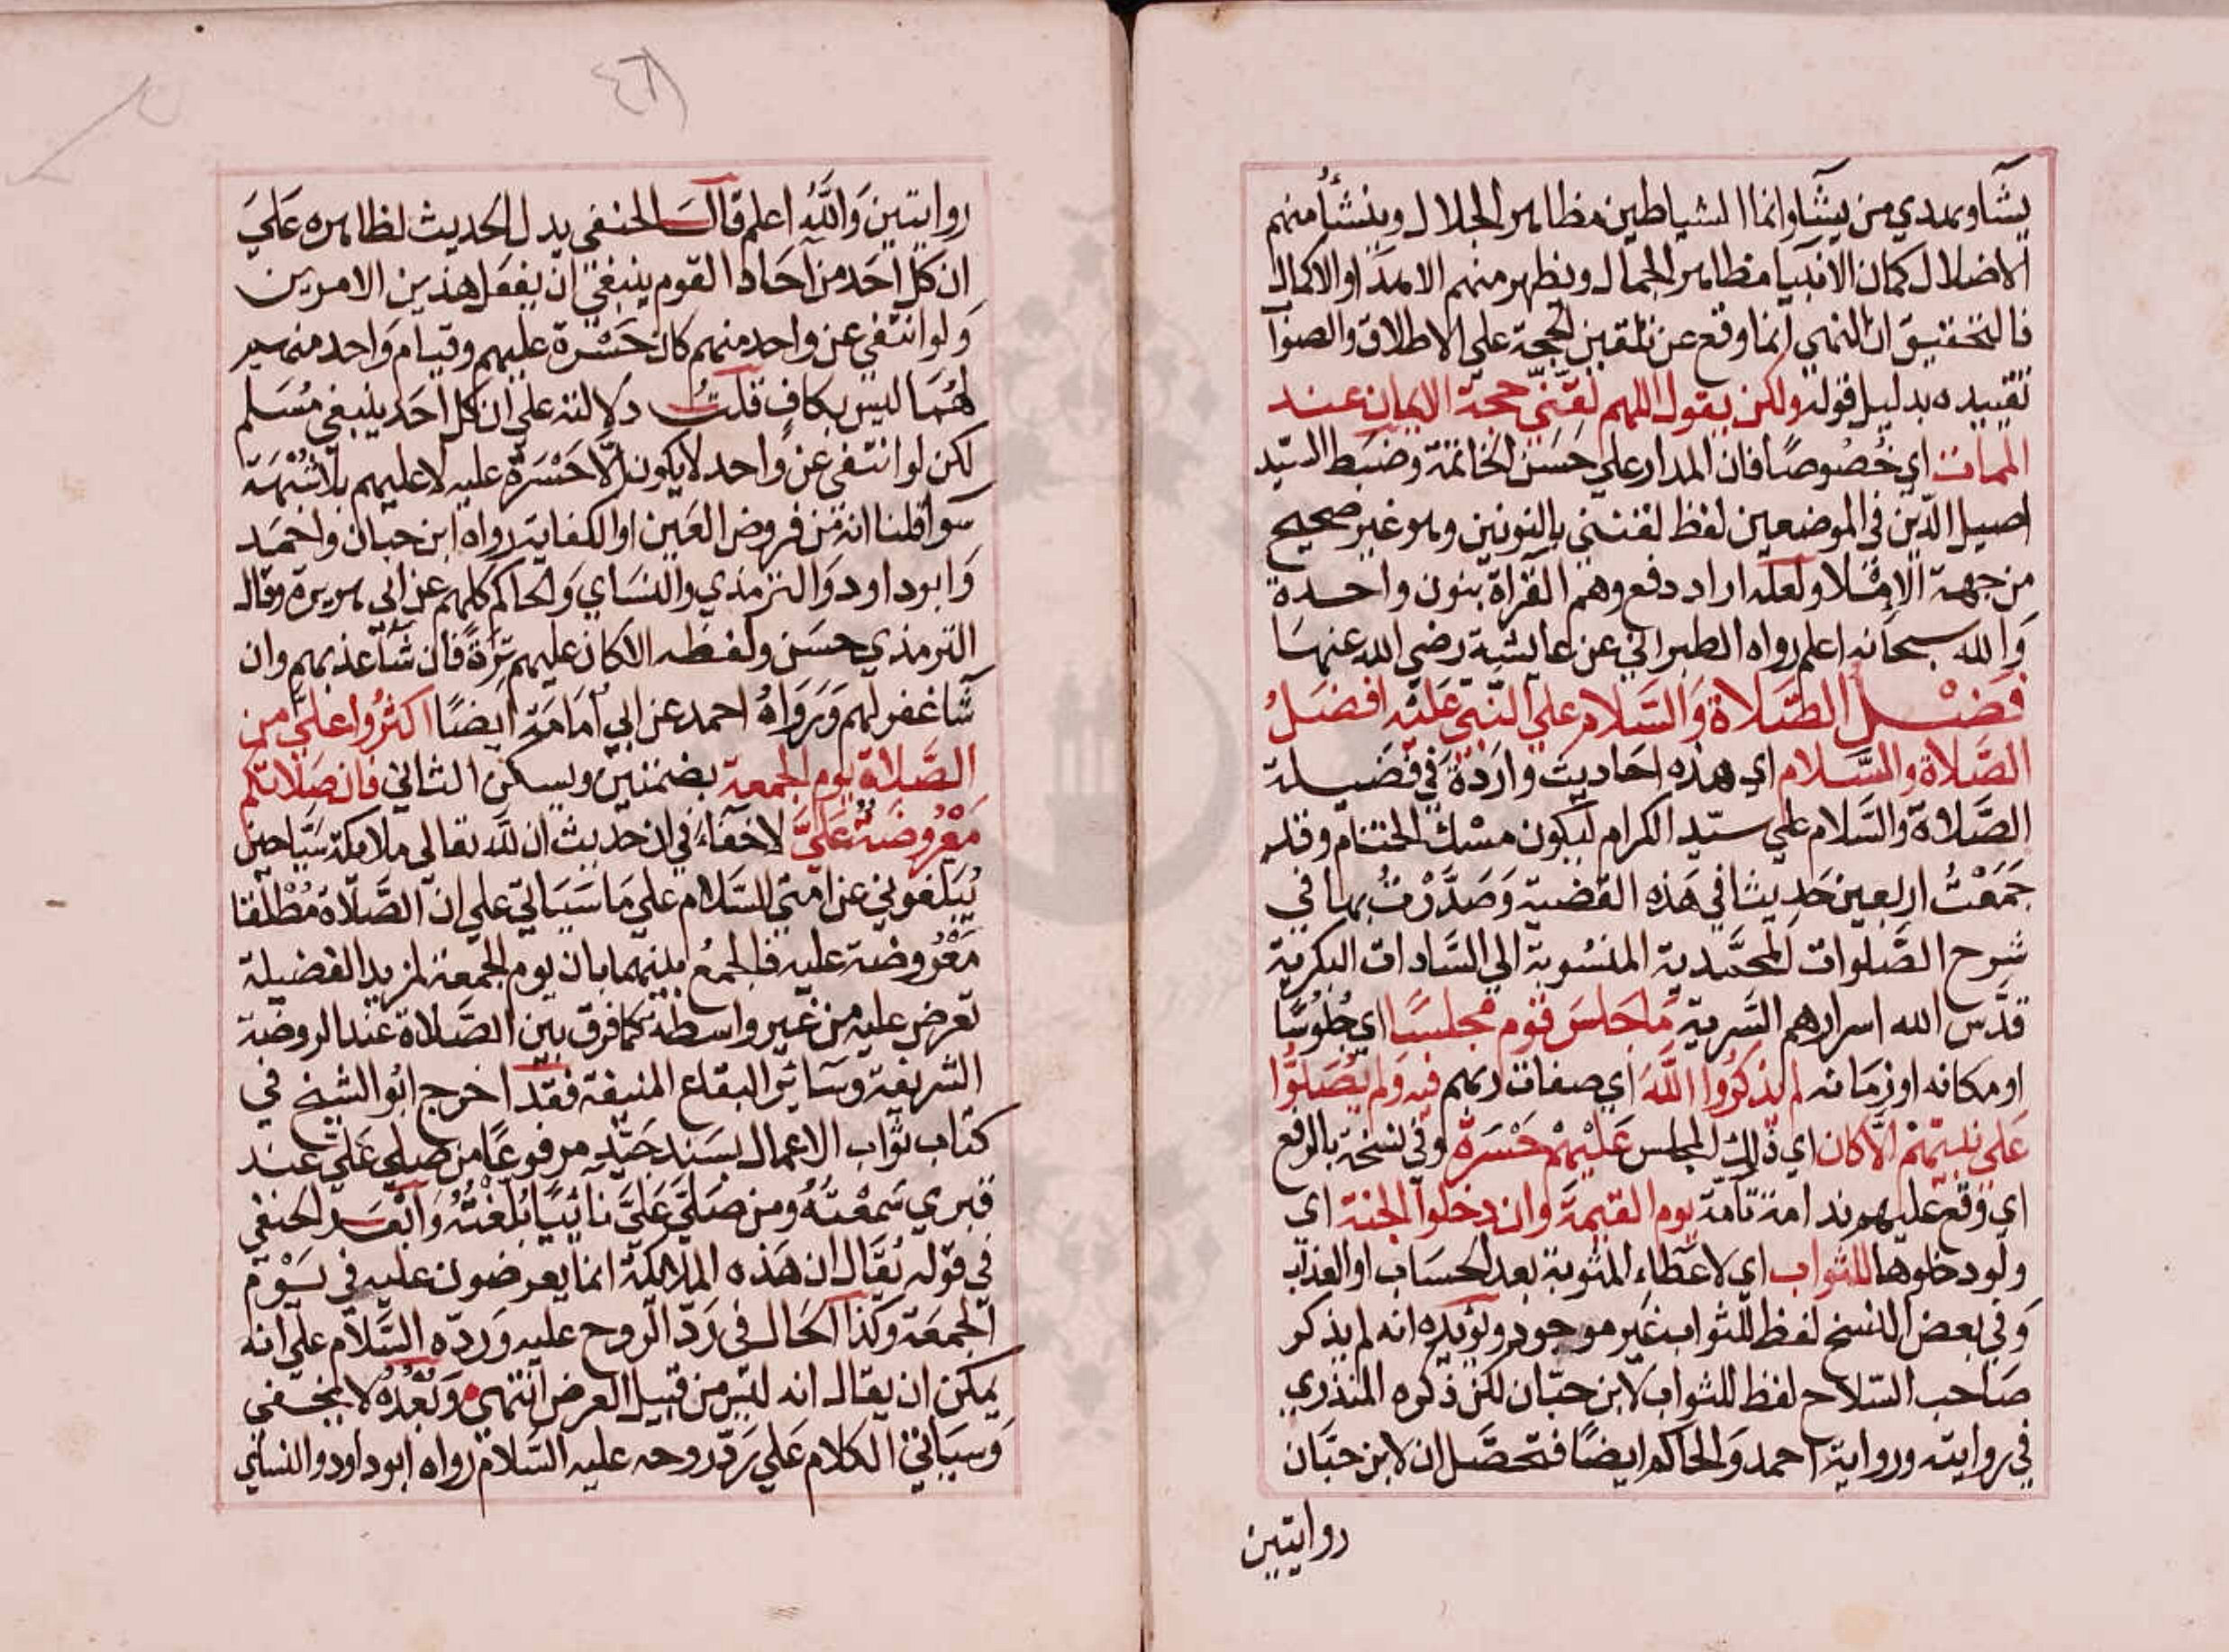 يشآ ويهدي من يشآ وانما الشياطين مظاهر الجلال وينشأ منهم
الاضلال كمان الانبيا مظاهر الجمال ويظهر منهم الامداد والاكمال
فالتحقيق ان النهي انما وقع عن تلقين الحجة علي الاطلاق والصوآ
تقييده بدليل قوله ولكن يقول اللهم لقني حجة الايمان عند
الممات اي خصوصًا فان المدار علي حسن الخاتمة وضبط السيّد
اصيل الدّين في الموضعين لفظ لقنني بالنونين وهو غير صحيح
من جهة الاملا ولعله اراد دفع وهم القرآة بنون واحدة
وَالله سبحانه اعلم رواه الطبراني عن عايشة رضي الله عنها
فضْل الصَّلاة وَالسَّلام علي النّبي عَليْه افضَلُ
الصَّلاة والسَّلام اي هذه احَاديث وارَدةٌ في فضَيلة
الصَّلاة والسَّلام علي سيّد الكرام ليكون مسْك الختام وقد
جَمَعْتُ اربعين حَديثا في هَذه القضية وَصَدَّرْتُ بها في
شرح الصَّلوات المحمَّدية المنسُوبة الي السَّادات البكرية
قدَّس الله اسرارهم السَّرية مَا جلسَ قوم مجلسًا اي جُلوسًا
او مكانه او زمَانه لم يذكرُوا اللَّهَ اي صفات ربهم فيه وَلم يُصَلوُّا
عَلي نبيّهمْ الَّا كان اي ذٰلك المجلس عَليْهمْ حَسْرَةً وفي نسخة بالرفع
اي وقع عليهم ندامة تآمّة يوم القيٰمَة وان دخلوا الجنة اي
ولو دخلوها للثواب اي لاعطاء المثوبة بعد الحسَاب او العذاب
وَفي بعض النسخ لفظ للثواب غير موجود ويؤيده انه لم يذكر
صَاحب السّلاح لفظ للثواب لابن حبّان لكن ذكره المنذري
في روايته ورواية احمد وَالحاكم ايضًا فتحصَّل ان لابن حبَّان
روايتين
روايتين وَاللَّهُ اعلم قالَ الحنفي يدل الحديث لظاهره عَليَ
ان كلّ احَد من آحَاد القوم ينبغي ان يفعَل هذين الامرين
وَلو انتفي عن واحد منهم كان حَسْرة عليهم وقيام وَاحد منهم
لهُمَا ليس بكافٍ قلتُ دلالته علي ان كل احَد ينبغي مُسَلم
لكن لو انتفي عن وَاحد لا يكون الَّا حَسْرَةً عليه لا عليهم بلا شُبْهَة
سوآ قلنا انه من فروض العَين او الكفاية رواه ابن حبان واحمَد
وَابوداود وَالترمذي والنسَاي وَالحاكم كلهم عن ابي هريرة وقال
الترمذي حسَن ولفظه الا كان عليهم تِرَةً فان شآ عذبهم وان
شآ غفر لهم وَرَوَاهُ احمد عن ابي اُمَامَة ايضًا اكثرُوا عليَّ من
الصَّلاة يوم الجمعة بضمتين ويسكن الثاني فان صَلاتكم
مَعْرُوضَةٌ عَليَّ لا خفآءَ في ان حديث ان لله تعالي ملائكة سَيّاحين
يُبَلغوني عن امتي السَّلام علي مَا سَيَاتي علي ان الصَّلاة مُطْلَقا
مَعْرُوضة عليه فالجمعُ بينهما بان يوم الجمعة لمزيد الفضيلة
تعرض عليه من غير واسطة كما فرق بين الصَّلاة عند الروضة
الشريفة وسَائر البقاع المنيفة فقد اخرج ابُو الشيخ في
كتاب ثوآب الاعمال بسَند جَيّد مرفوعًا من صَلي عَلَيَّ عند
قبري سَمعْتُهُ ومن صَلّي عَلَيَّ نآئيًا بُلّغْتُهُ وَابْعَد الحنفي
في قوله يُقَال ان هَذه الملائكة انما يعرضون عليه في يَوْم
الجمعَة وكذَا الحَال في رَدّ الروح عليه وَردّه السَّلام علي انه
يمكن ان يقال انه ليس من قبيل العرض انتهي وَبُعْدُهُ لا يخفي
وَسيَاتي الكلام عَلي رَدّ روحه عليه السَّلام رواه ابوداود والنساي